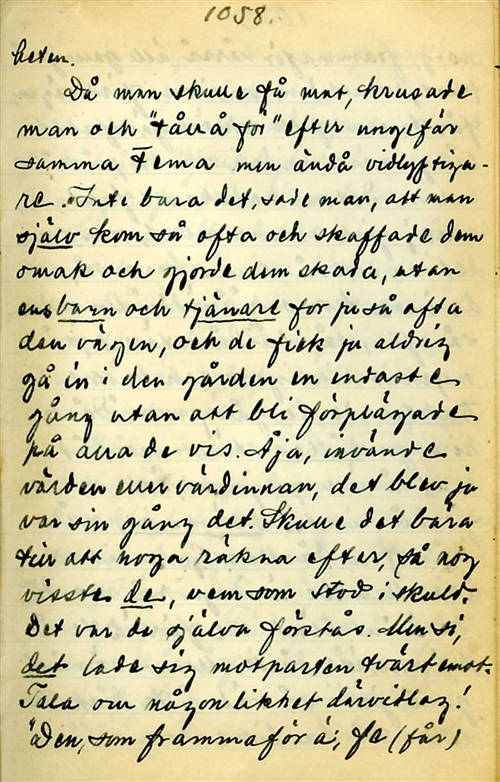 1058.
heten.
Då man skulle få mat, krusade
man och "tållå för" efter ungefär
samma tema men ändå vidlyftiga-
re. Inte bara det, sade man, att man
själv kom så ofta och skaffade dem
omak och gjorde dem skada, utan
ens barn och tjänare for ju så ofta
den vägen, och de fick ju aldrig
gå in i den gården en endaste
gång utan att bli förplägade
på alla de vis. Åja, invände
värden eller värdinnan, det blev ju
var sin gång det. Skulle det bära
till att noga räkna efter, så nog
visste de, vem som stod i skuld.
Det var de själva förstås. Men si,
det lade sig motparten tvärtemot.
Tala om någon likhet därvidlag!
"Den, som frammaför ä', fe (får)